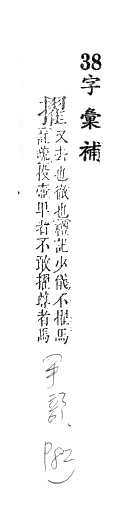 38字彙補
擢
又去也徹也禮記少儀不擢馬
註疏投壺卑者不敢擢尊者馬
P82)